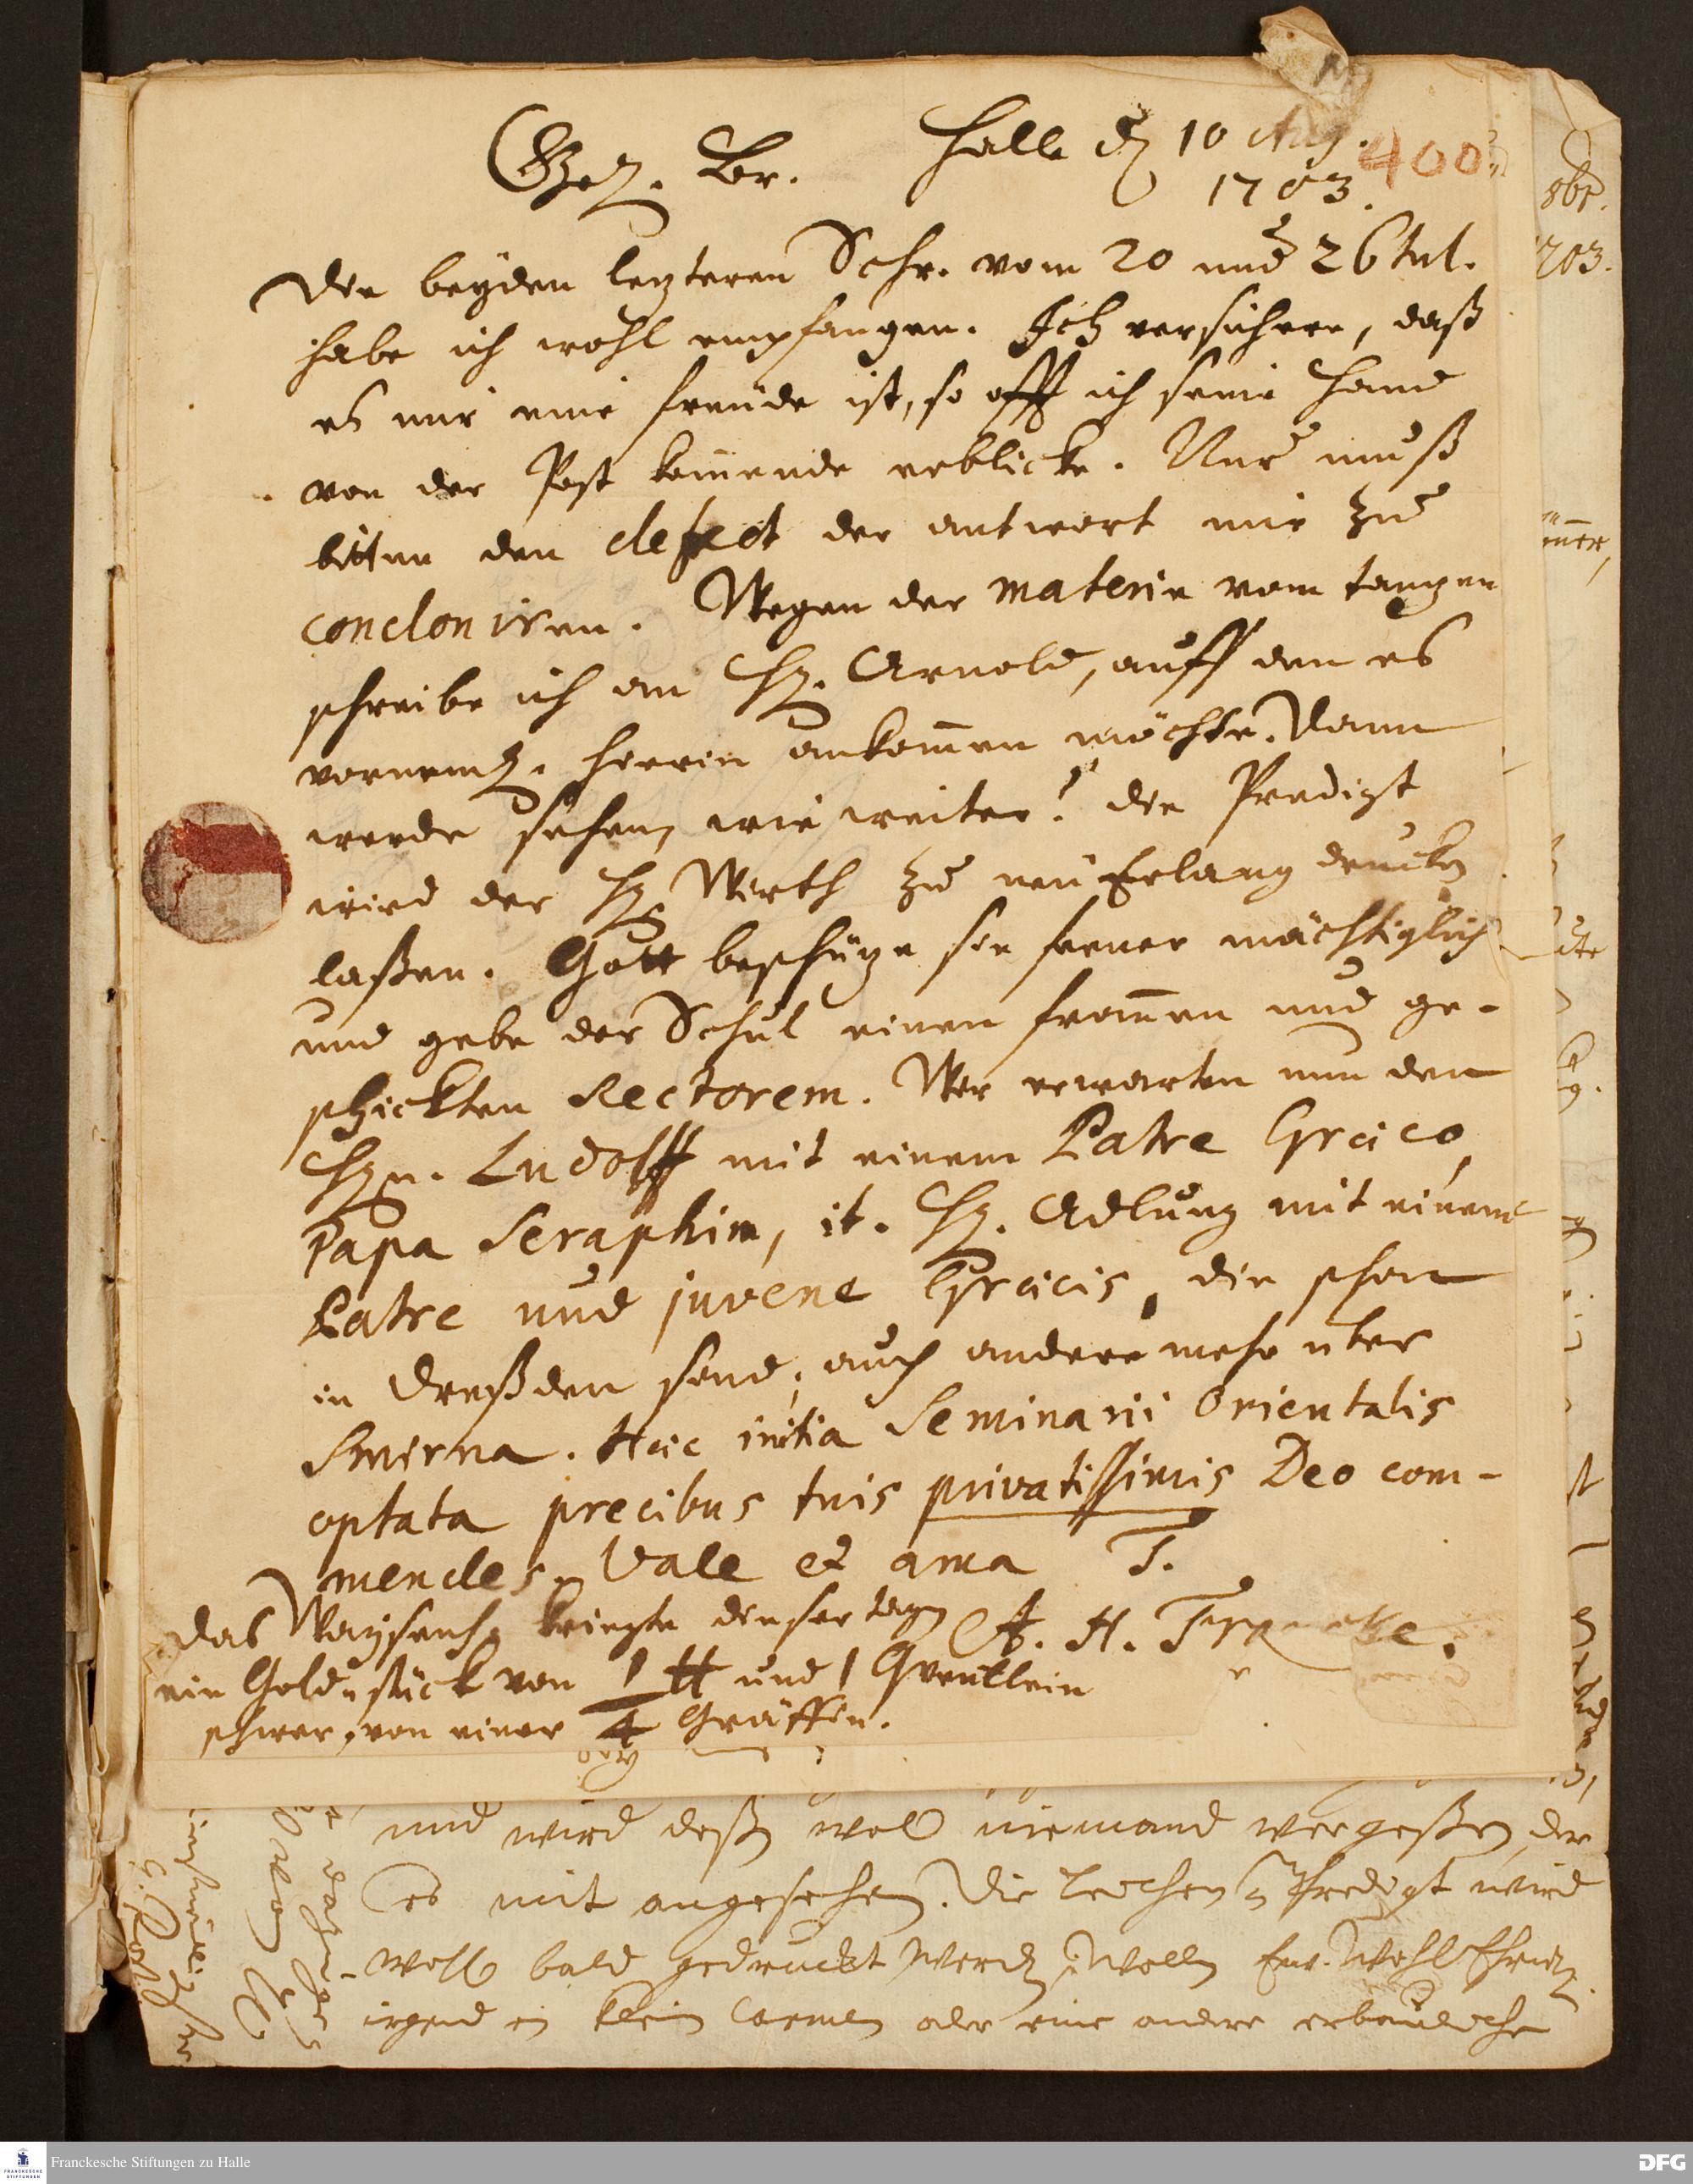 Halle d. 10 Aug.
1703.
400
Gel. Br.
Die beyden letzteren Schr. vom 20 und 26 Jul.
habe ich wohl empfangen. Ich versichere, daß
es mir eine freude ist, so offt ich seine Hand
von der Post kommende erblicke. Nur muß
bitten den defect der antwort mir zu
condoniren. Wegen der materie vom tantzen
schreibe ich an H. Arnold, auff den es
vorneml. hierin ankommen möchte. Dann
werde sehen, wie weiter? Die Predigt
wird der H. Wirth zu neu Erlang drucken
laßen. Gott beschütze sie ferner mächtiglich
und gebe der Schul einen frommen und ge-
schickten Rectorem. Wir erwarten nun den
Hn. Ludolff mit einem Patre Graeco,
Papa Seraphim, it. H. Adlung mit einem
Patre und juvene Graecis, die schon
in Dreßden sind, auch andere mehr über
Smirna. Haec initia Seminarii Orientalis
optata precibus tuis privatissimis Deo com-
mendes. Vale et ama T.
A. H. Francke.
Das Waysenh. kriegte dieser tage
ein Gold-stück von 1 ℔ und 1 Quentlein
schwer, von einer Gräffin.
und wird deßen wol niemand vergeßen, der
es mit angesehen. Die Leichen Predigt wird
wohl bald gedruckt werden, wollen Ew. WohlEhrw.
irgend ein klein Carmen oder eine andere erbauliche
1703.
Franckesche Stiftungen zu Halle
FRANCKESCHE
STIFTUNGEN
DFG